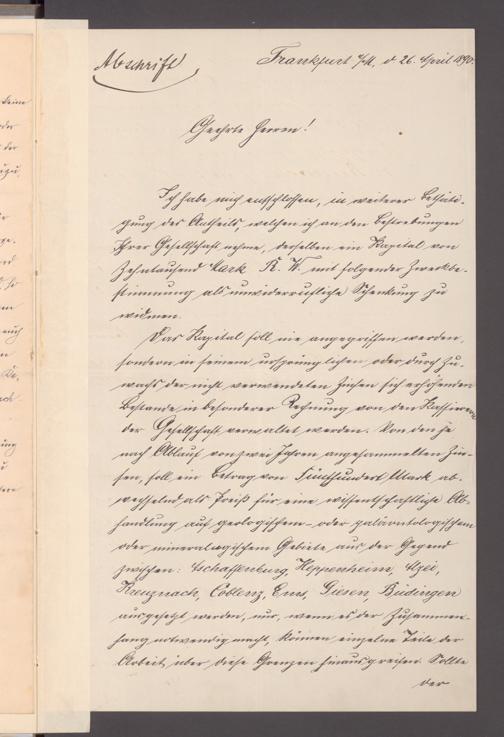 Abschrift
Frankfurt a/M, d 26. April 1890.
Geehrte Herren!
Ich habe mich entschlossen, in weiterer Bethäti-
gung des Antheils, welchen ich an den Bestrebungen
Ihrer Gesellschaft nehme, derselben ein Kapital von
Zehntausend Mark R. W. mit folgender Zweckbe-
stimmung als unwiderrufliche Schenkung zu
widmen.
Das Kapital soll nie angegriffen werden,
sondern in seinem ursprünglichen oder durch Zu-
wachs der nicht verwendeten Zinsen sich erhöhenden
Bestande in besonderer Rechnung von den Kassierern
der Gesellschaft verwaltet werden. Von den je
nach Ablauf von zwei Jahren angesammelten Zin-
sen, soll ein Betrag von Fünfhundert Mark ab-
wechselnd als Preiß für eine wissentschaftliche Ab-
handlung auf geologischem- oder paläontologischem
oder mineralogischem Gebiete aus der Gegend
zwischen: Aschaffenburg, Heppenheim, Alzei,
Kreuznach, Coblenz, Ems, Giesen, Büdingen
ausgesetzt werden, nur, wenn es der Zusammen-
hang nothwendig macht, können einzelne Teile der
Arbeit über diese Grenzen hinausgreifen. Sollte
der